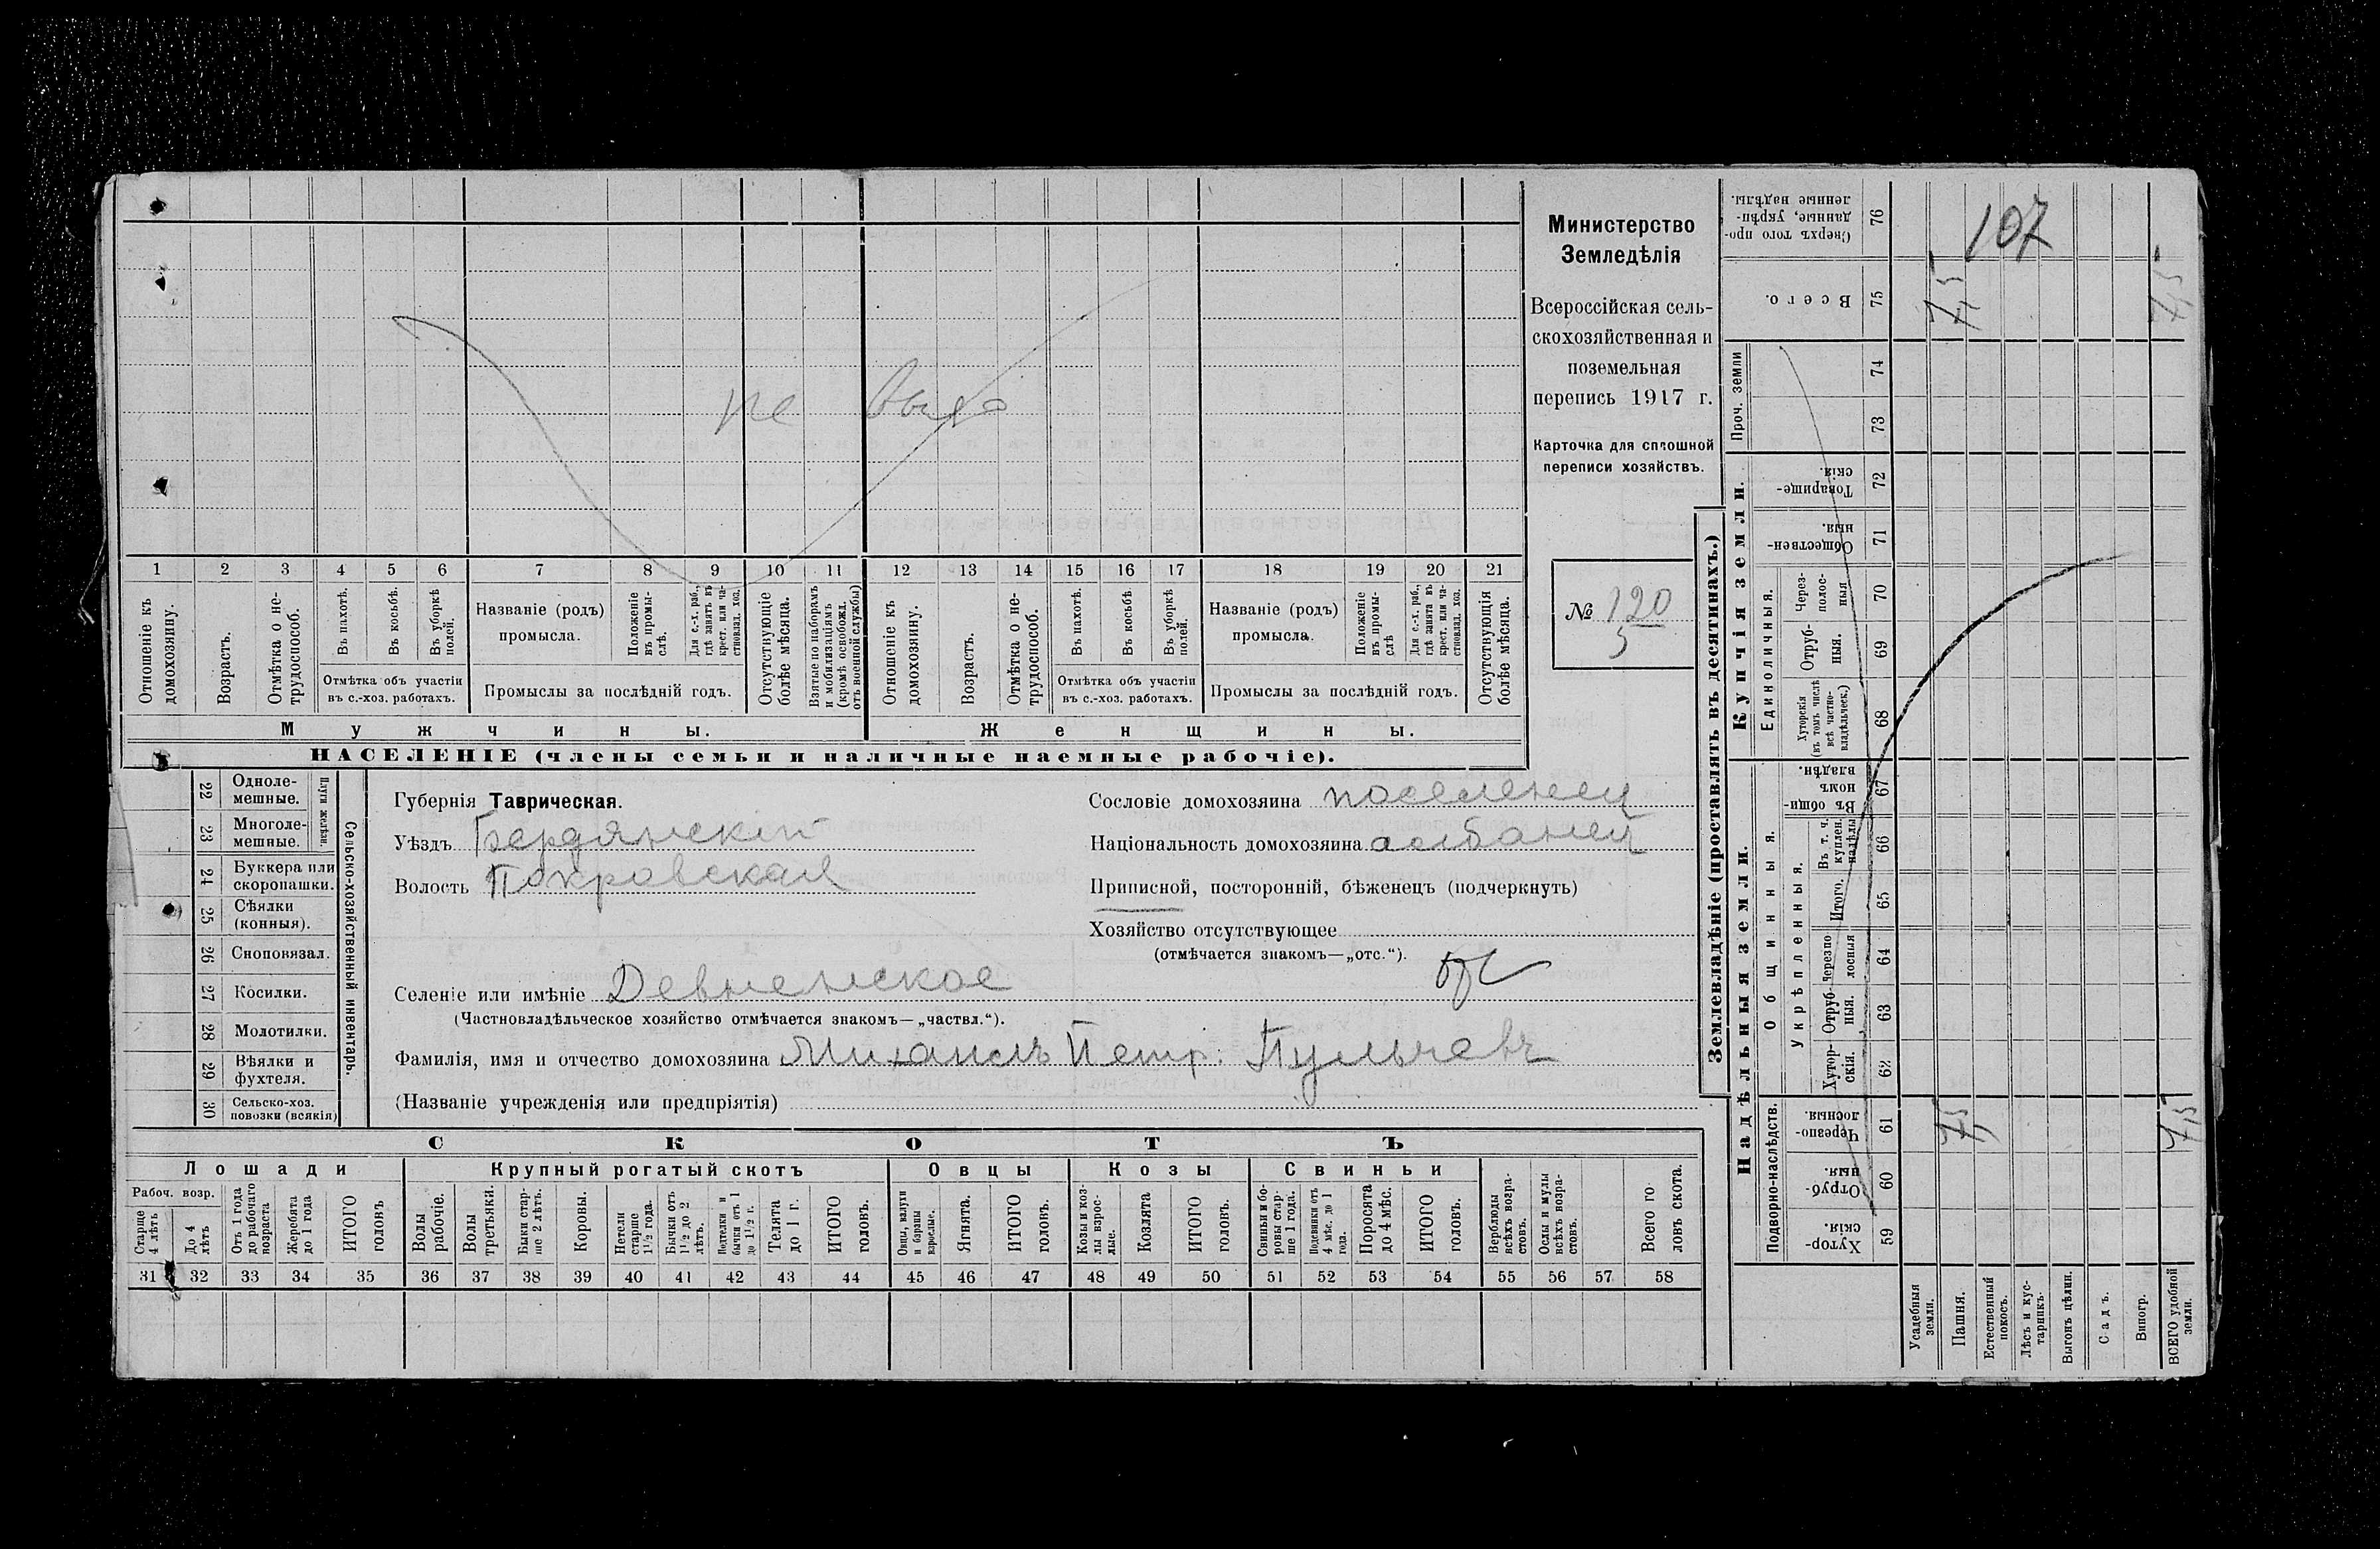 не было
1 2 3 4 5 6 7 8 9 10 11 12 13 14 15 16 17 18 19 20 21
Отношеніе къ домохозяину.
Возрастъ.
Отмѣтка о не-
трудоспособ.
Въ пахотѣ.
Въ косьбѣ.
Въ уборкѣ
полей.
Отмѣтка объ участіи
въ с.-хоз. работахъ.
Названіе (родъ)
промысла.
Положеніе
въ промыслѣ.
Для с.-х. раб.,
гдѣ занятъ въ
крест. или ча-
стновлад. хоз.
Промыслы за послѣдній годъ.
Отсутствующіе
болѣе мѣсяца.
Взятые по наборамъ
и мобилизаціямъ
(кромѣ освобожд.
отъ военной службы)
Отношеніе къ
домохозяину.
Возрастъ.
Отмѣтка о не-
трудоспособ.
Въ пахотѣ.
Въ косьбѣ.
Въ уборкѣ
полей.
Отмѣтка объ участіи
въ с.-хоз. работахъ.
Названіе (родъ)
промысла.
Положеніе
въ промы-
слѣ
Для с.-х. раб.,
гдѣ занята въ
крест. или ча-
стновлад. хоз.
Промыслы за послѣдній годъ.
Отсутствующія
болѣе мѣсяца.
Мужчины.
Женщины.
НАСЕЛЕНІЕ (члены семьи и наличные наемные рабочіе).
Министерство
Земледѣлія
Всероссійская сель-
скохозяйственная и
поземельная
перепись 1917 г.
Карточка для сплошной
переписи хозяйствъ.
№ 120
5
22 Одноле-
мешные.
23 Многоле-
мешные.
Плуги желѣзн.
24 Буккера или
скоропашки.
25 Сѣялки
(конныя).
26 Сноповязал.
27 Косилки.
28 Молотилки.
29 Вѣялки и
фухтеля.
30 Сельско-хоз.
повозки (всякія)
Сельско-хозяйственный инвентарь.
Губернія Таврическая.
Уѣздъ Бердянскій
Волость Покровская
Сословіе домохозяина поселенец
Національность домохозяина албанец
Приписной, посторонній, бѣженецъ (подчеркнуть)
Хозяйство отсутствующее
(отмѣчается знакомъ—„отс.“).
отс
Селеніе или имѣніе Девненское
(Частновладѣльческое хозяйство отмѣчается знакомъ—„частвл.“).
Фамилія, имя и отчество домохозяина Михаилъ Петр. Пульчевъ
(Названіе учрежденія или предпріятія)
СКОТЪ
Лошади
Крупный рогатый скотъ
Овцы
Козы
Свиньи
Рабоч. возр.
Старше
4 лѣтъ
До 4
лѣтъ
Отъ 1 года
до рабочаго
возраста
Жеребята
до 1 года
ИТОГО
головъ
Волы
рабочіе.
Волы
третьяки.
Быки стар-
ше 2 лѣтъ.
Коровы.
Нетели
старше
1½ года.
Бычки отъ
1½ до 2
лѣтъ.
Подтелки и
бычки отъ 1
до 1½ г.
Телята
до 1 г.
ИТОГО
головъ.
Овцы, валухи
и бараны
взрослые.
Ягнята.
ИТОГО
головъ.
Козы и коз-
лы взрос-
лые.
Козлята
ИТОГО
головъ.
Свиньи и бо-
ровы стар-
ше 1 года.
Подсвинки отъ
4 мѣс. до 1
года.
Поросята
до 4 мѣс.
ИТОГО
головъ.
Верблюды
всѣхъ возра-
стовъ.
Ослы и мулы
всѣхъ возра-
стовъ.
Всего го-
ловъ скота.
31 32 33 34 35 36 37 38 39 40 41 42 43 44 45 46 47 48 49 50 51 52 53 54 55 56 57 58
Землевладѣніе (проставлять въ десятинахъ.)
Надѣльныя земли.
Купчія земли.
Проч. земли
Сверхъ того про-
данные, укрѣп-
ленные надѣлы.
76
107
Всего.
75
75
75
74
73
Товарище-
скія.
72
Обществен-
ныя.
71
Единоличныя.
Через-
полос-
ныя
70
Отруб-
ныя.
69
Хуторскія
(въ томъ числѣ
всѣ частно-
владѣльческ.)
68
Общинныя.
Въ общи-
номъ
владѣн.
67
Укрѣпленныя.
Въ т. ч.
куплен.
надѣлы
66
Итого.
65
Черезпо
лосныя
64
Отруб-
ныя.
63
Хутор-
скія.
62
Подворно-наслѣдств.
Черезпо-
лосныя.
61
75
75
Отруб-
ныя.
60
Хутор-
скія.
59
Усадебныя
земли.
Пашня.
Естественный
покосъ.
Лѣсъ и кус-
тарникъ.
Выгонъ цѣлин.
Садъ.
Виногр.
ВСЕГО удобной
земли.